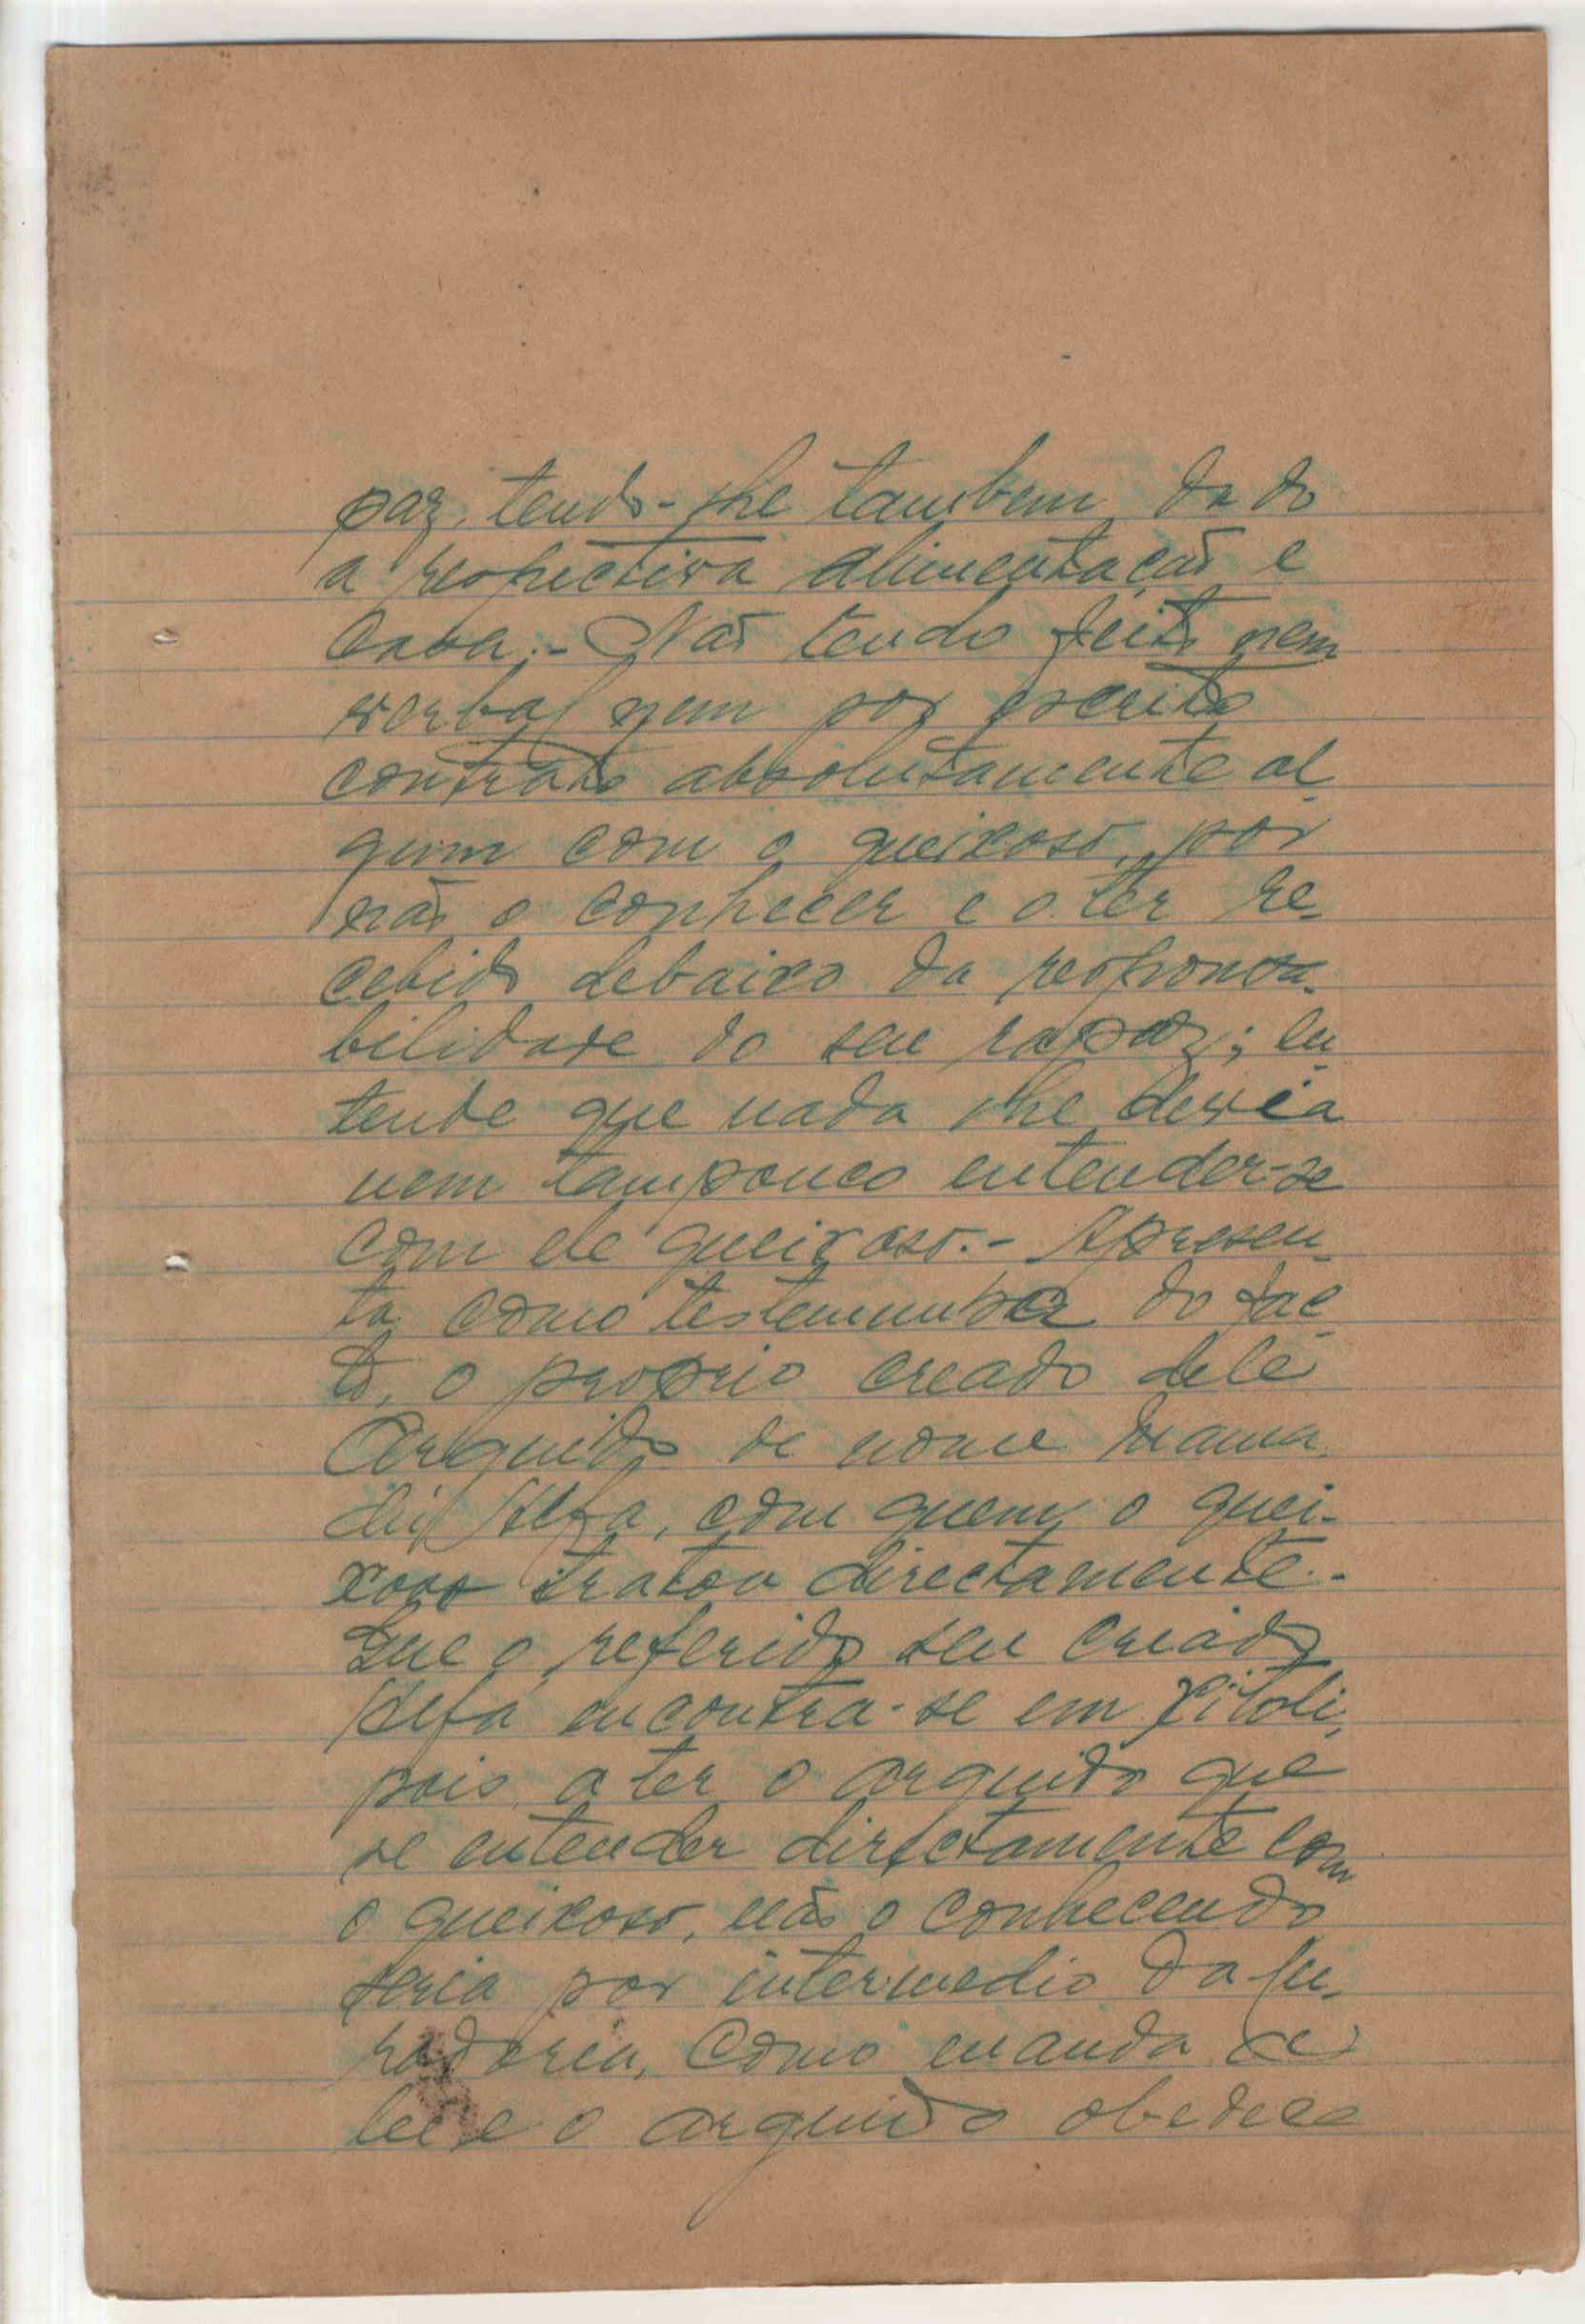 paz, tendo-lhe tambem dado
a respectiva alimentação e
casa.- Não tendo feito nem
verbal nem por escrito
contrato absolutamente al
gum com o queixoso, por
não o conhecer e o ter re-
cebido debaixo da responsa-
bilidade do seu rapaz; en
tende que nada lhe devia
nem tampouco entender-se
com ele queixoso.- Apresen-
ta como testemunha do fac
to, o proprio creado dele
Arguido de nome Mama
dú Alfa, com quem o quei-
xoso tratou directamente.-
Que o referido seu criado
Alfa encontra-se em Pitoli,
pois, a ter o arguido que
se entender directamente com
o queixoso, não o conhecendo
seria por intermedio da Cu-
radoria, como manda a
lei e o arguido obedece